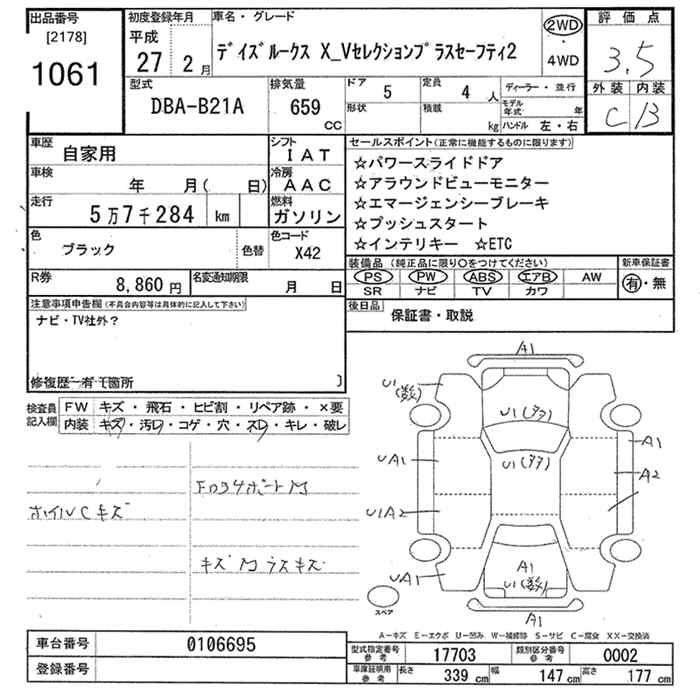 出品番号
[2178]
1061
初度登録年月
平成
27 2 月
車名・グレード
デイズルークス X_Vセレクションプラスセーフティ2
2WD
・
4WD
評価点
3.5
外装 内装
C B
型式
DBA-B21A
排気量
659
CC
ドア 5
定員 4 人
形状
積載 kg
ディーラー・並行
モデル年式 年
ハンドル 左・右
車歴
自家用
シフト
IAT
車検
年 月( 日)
冷房
AAC
走行
5万7千284 km
燃料
ガソリン
色
ブラック
色替
色コード
X42
R券
8,860 円
名変通知期限
月 日
セールスポイント(正常に機能するものに限ります)
☆パワースライドドア
☆アラウンドビューモニター
☆エマージェンシーブレーキ
☆プッシュスタート
☆インテリキー ☆ETC
装備品 (純正品に限り○をつけてください)
新車保証書
PS PW ABS エアB AW
SR ナビ TV カワ
有・無
後日品
保証書・取説
注意事項申告欄(不具合内容等は具体的に記入して下さい)
ナビ・TV社外?
修復歴 有 で箇所 )
検査員
記入欄
FW キズ・飛石・ヒビ割・リペア跡・×要
内装 キズ・汚レ・コゲ・穴・スレ・キレ・破レ
ホイルCキズ
キズ
A1
U1
(数)
U1
A1
UA1
U1
A2
U1A2
A1
UA1
U1(数)
A1
スペア
A-キズ E-エクボ U-凹み W-補修跡 S-サビ C-腐食 XX-交換済
車台番号 0106695
登録番号
型式指定番号
参考
17703
類別区分番号
参考
0002
車庫証明用
参考
長さ 339 cm 幅 147 cm 高さ 177 cm